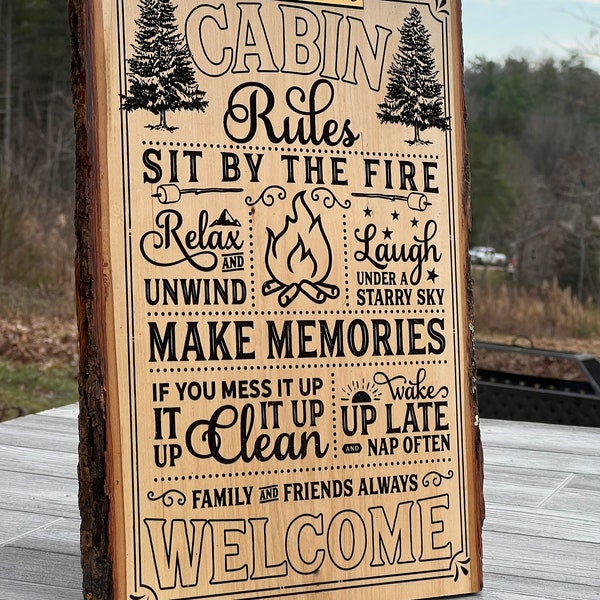 CABIN
Rules
SIT BY THE FIRE
Relax
AND
UNWIND
Laugh
UNDER A
STARRY SKY
MAKE MEMORIES
IF YOU MESS IT UP
IT UP Clean IT UP
Wake
UP LATE
AND NAP OFTEN
FAMILY AND FRIENDS ALWAYS
WELCOME